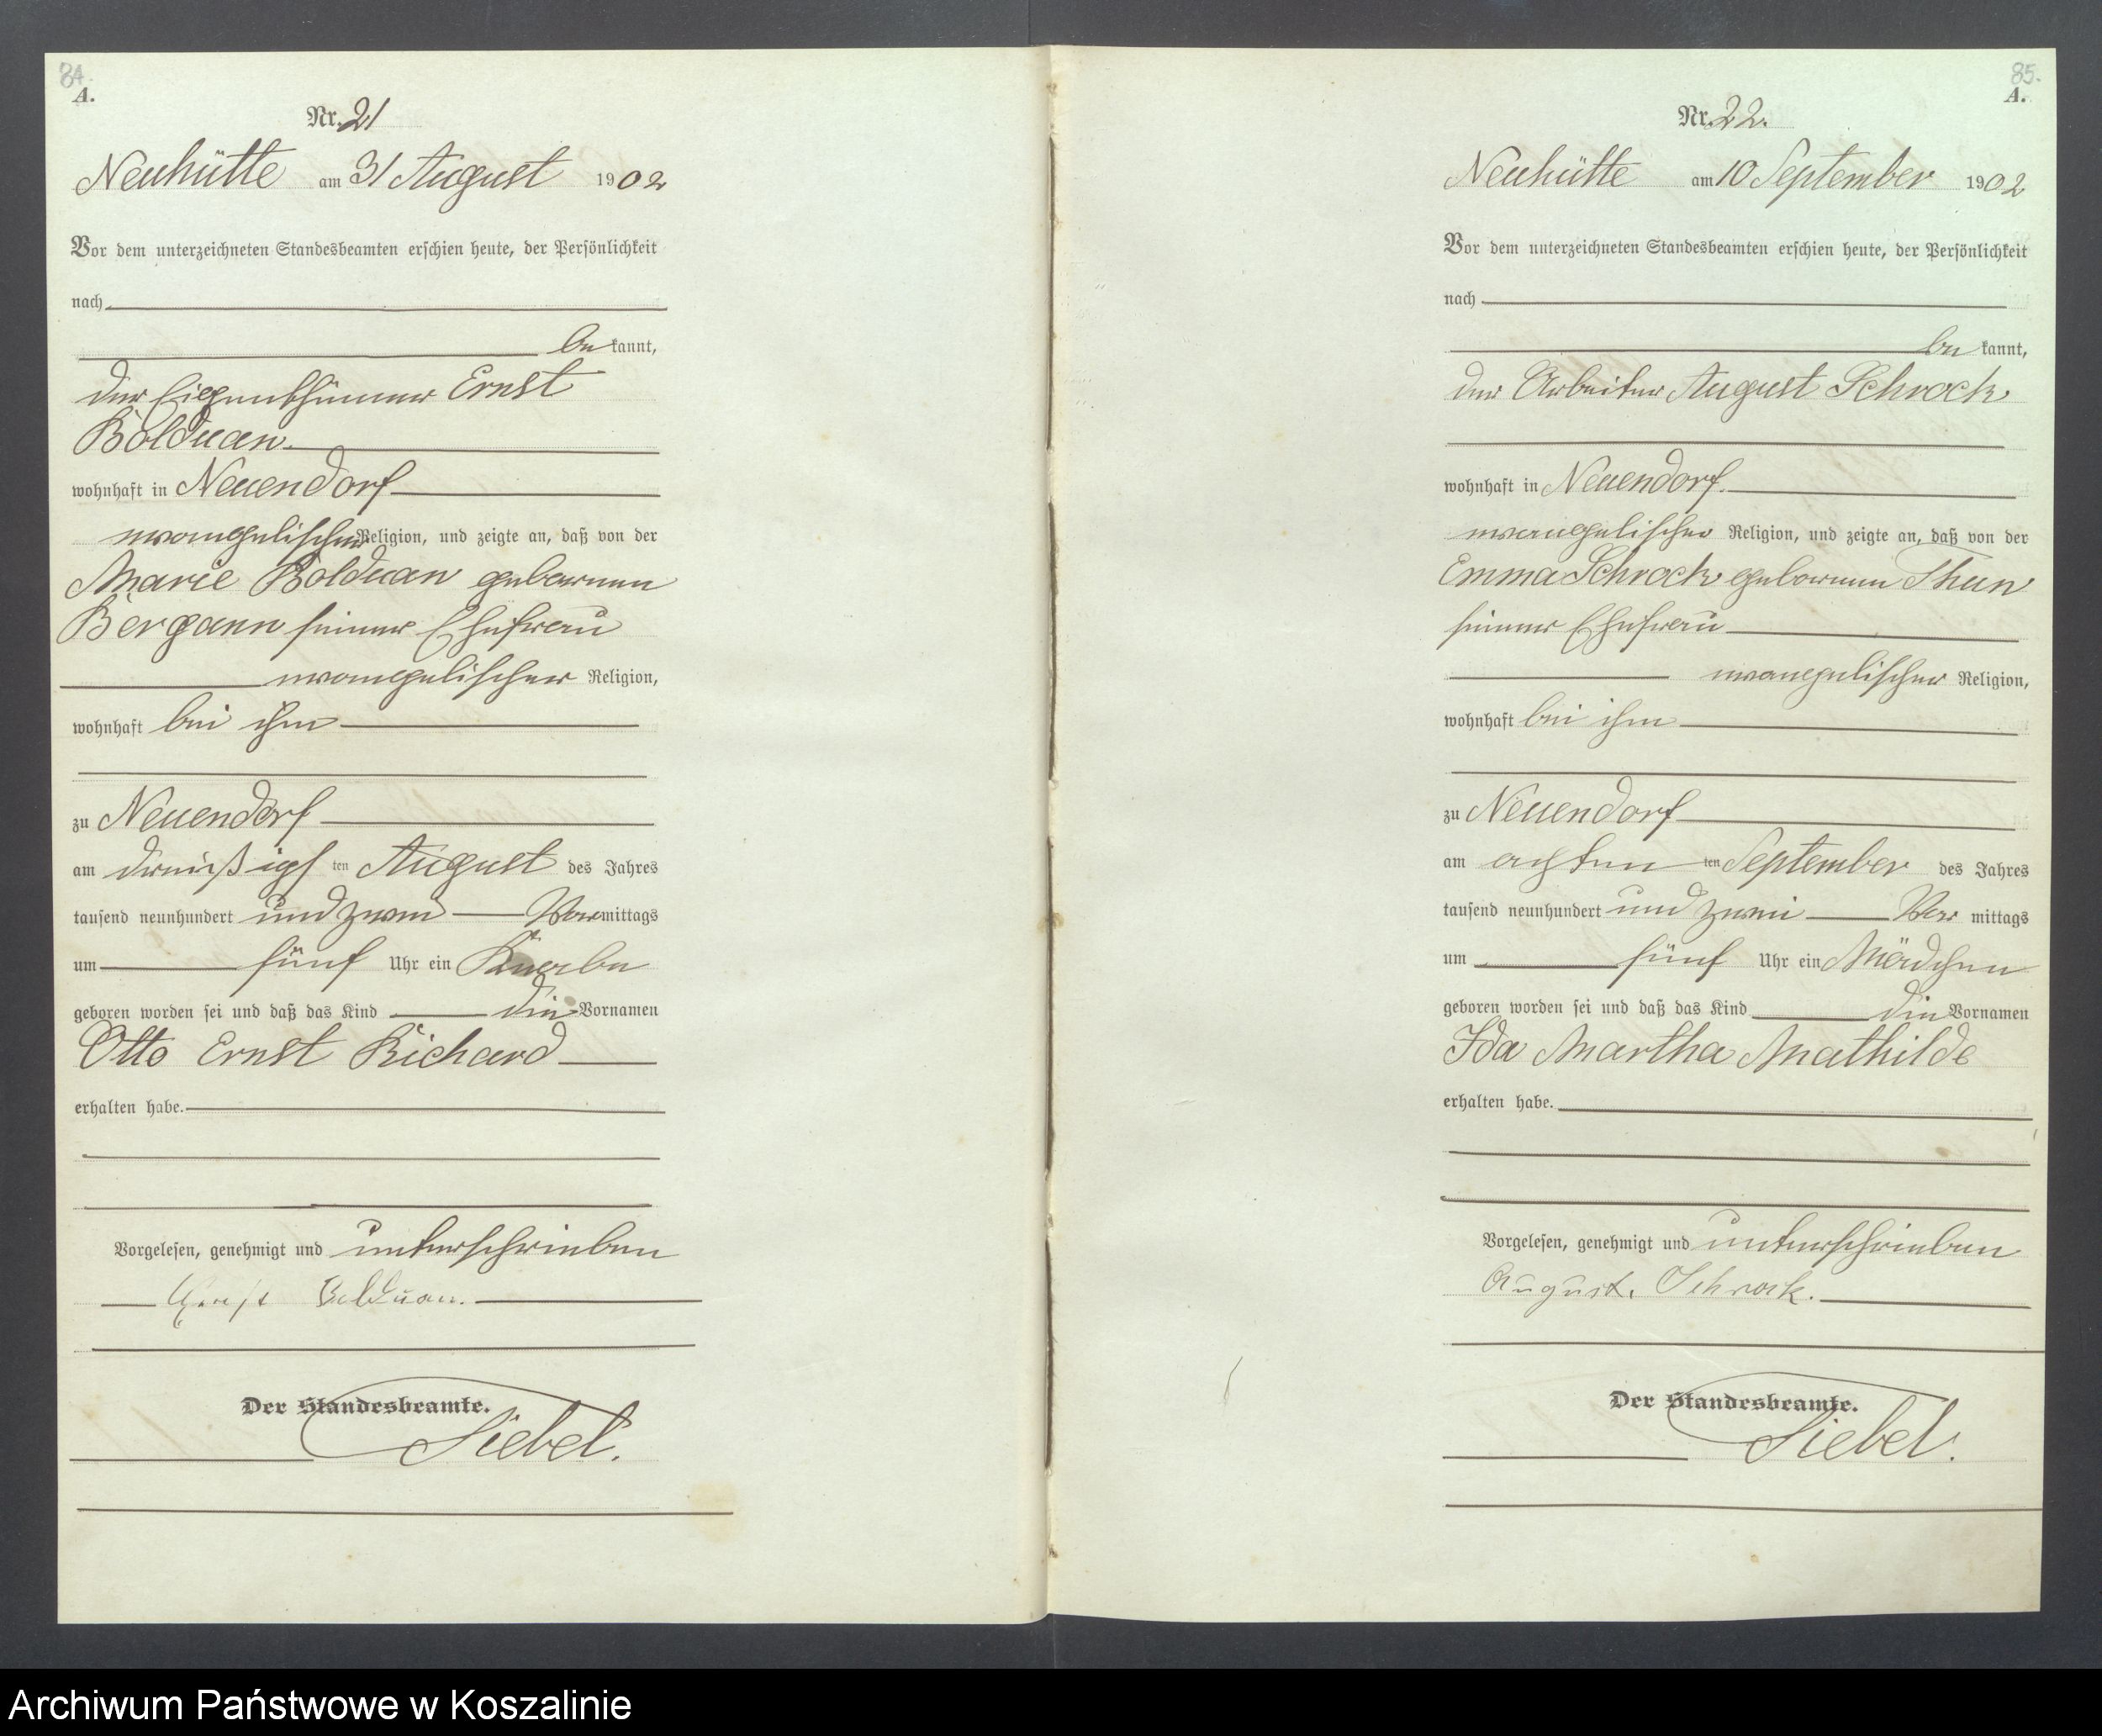 84.
A.
Nr. 21
Neuhütte am 31 August 1902
Vor dem unterzeichneten Standesbeamten erschien heute, der Persönlichkeit
nach
be kannt,
der Eigenthümer Ernst
Bolduan.
wohnhaft in Neuendorf
evangelischer Religion, und zeigte an, daß von der
Marie Bolduan geborenen
Bergann seiner Ehefrau
evangelischer Religion,
wohnhaft bei ihm
zu Neuendorf
am dreißigsten August des Jahres
tausend neunhundert und zwei Vormittags
um fünf Uhr ein Knabe
geboren worden sei und daß das Kind die Vornamen
Otto Ernst Richard
erhalten habe.
Vorgelesen, genehmigt und unterschrieben
Ernst Bolduan.
Der Standesbeamte.
Siebel.
85.
A.
Nr. 22.
Neuhütte am 10 September 1902
Vor dem unterzeichneten Standesbeamten erschien heute, der Persönlichkeit
nach
be kannt,
der Arbeiter August Schrock
wohnhaft in Neuendorf.
evangelischer Religion, und zeigte an, daß von der
Emma Schrock geborenen Thun
seiner Ehefrau
evangelischer Religion,
wohnhaft bei ihm
zu Neuendorf
am achten ten September des Jahres
tausend neunhundert und zwei Vor mittags
um fünf Uhr ein Mädchen
geboren worden sei und daß das Kind die Vornamen
Ida Martha Mathilde
erhalten habe.
Vorgelesen, genehmigt und unterschrieben
August. Schrock.
Der Standesbeamte.
Siebel.
Archiwum Państwowe w Koszalinie